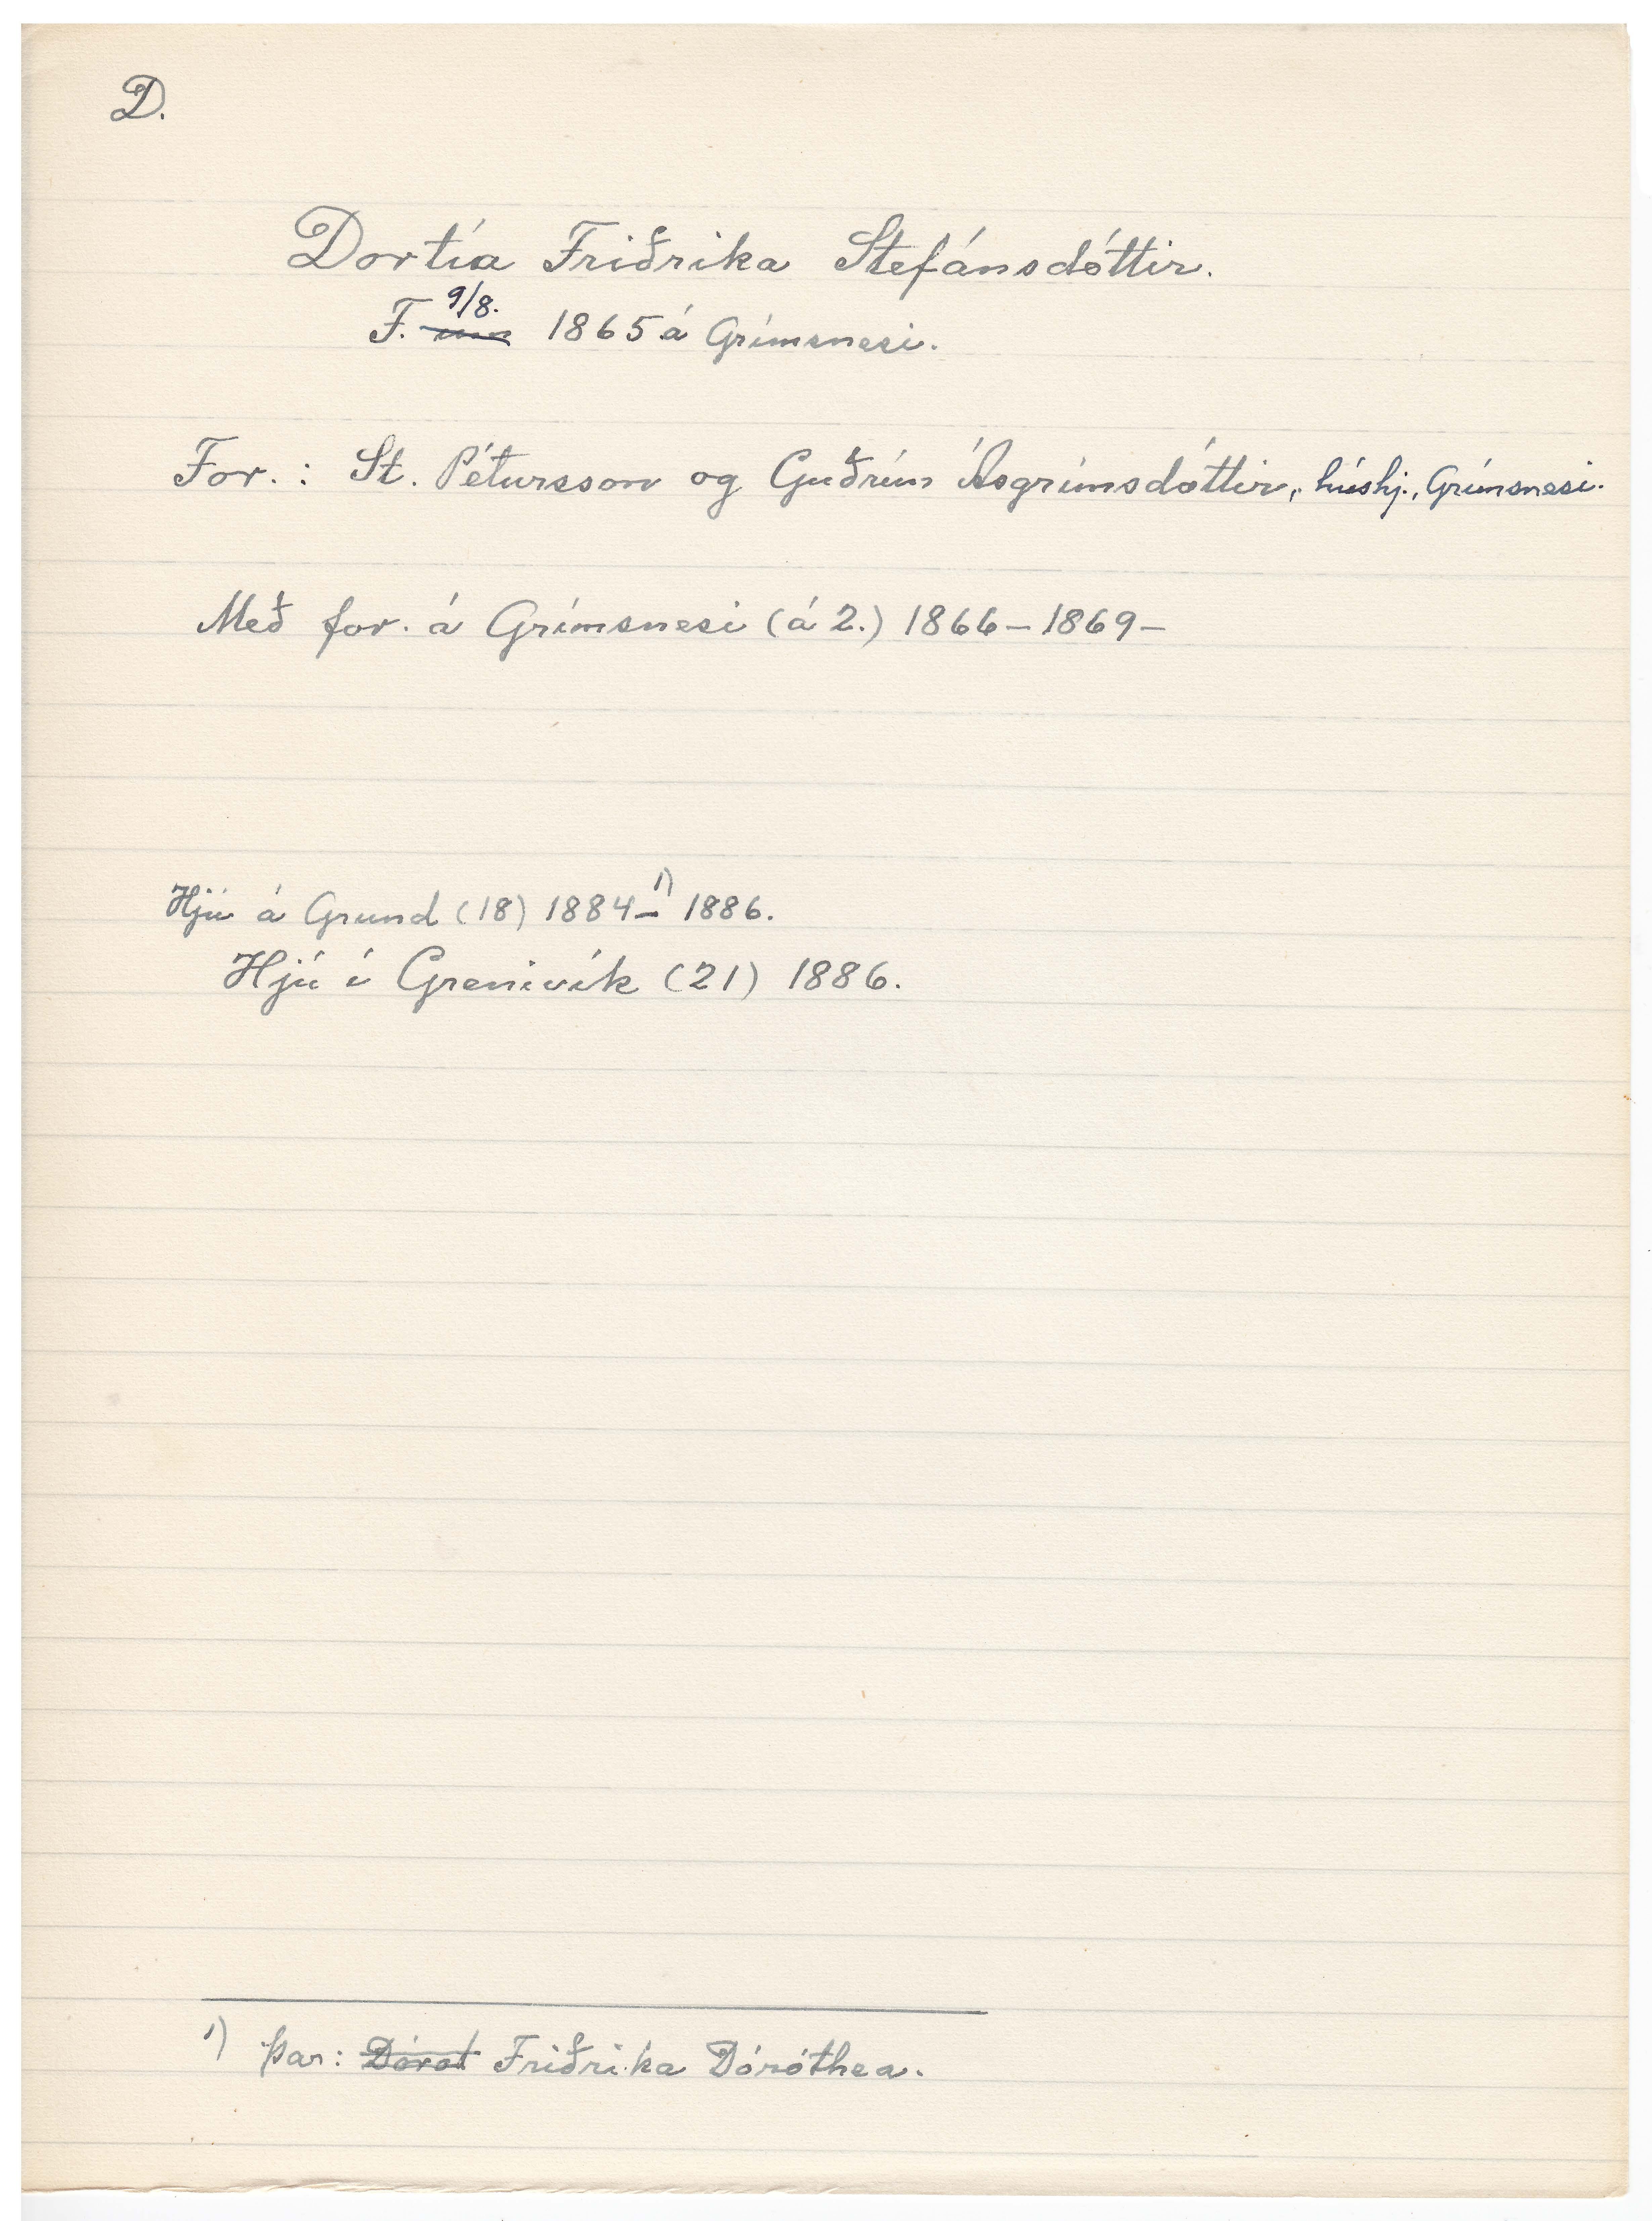 D.
Dortía Friðrika Stefánsdóttir.
9/8.
F. um 1865 á Grímsnesi.
For.: St. Pétursson og Guðrún Ásgrímsdóttir, húshj., Grímsnesi.
Með for. á Grímsnesi (á 2.) 1866 – 1869 –
Hjú á Grund (18) 1884 – 1) 1886.
Hjú í Grenivík (21) 1886.
1) Þar: Dórot Friðrika Dóróthea.